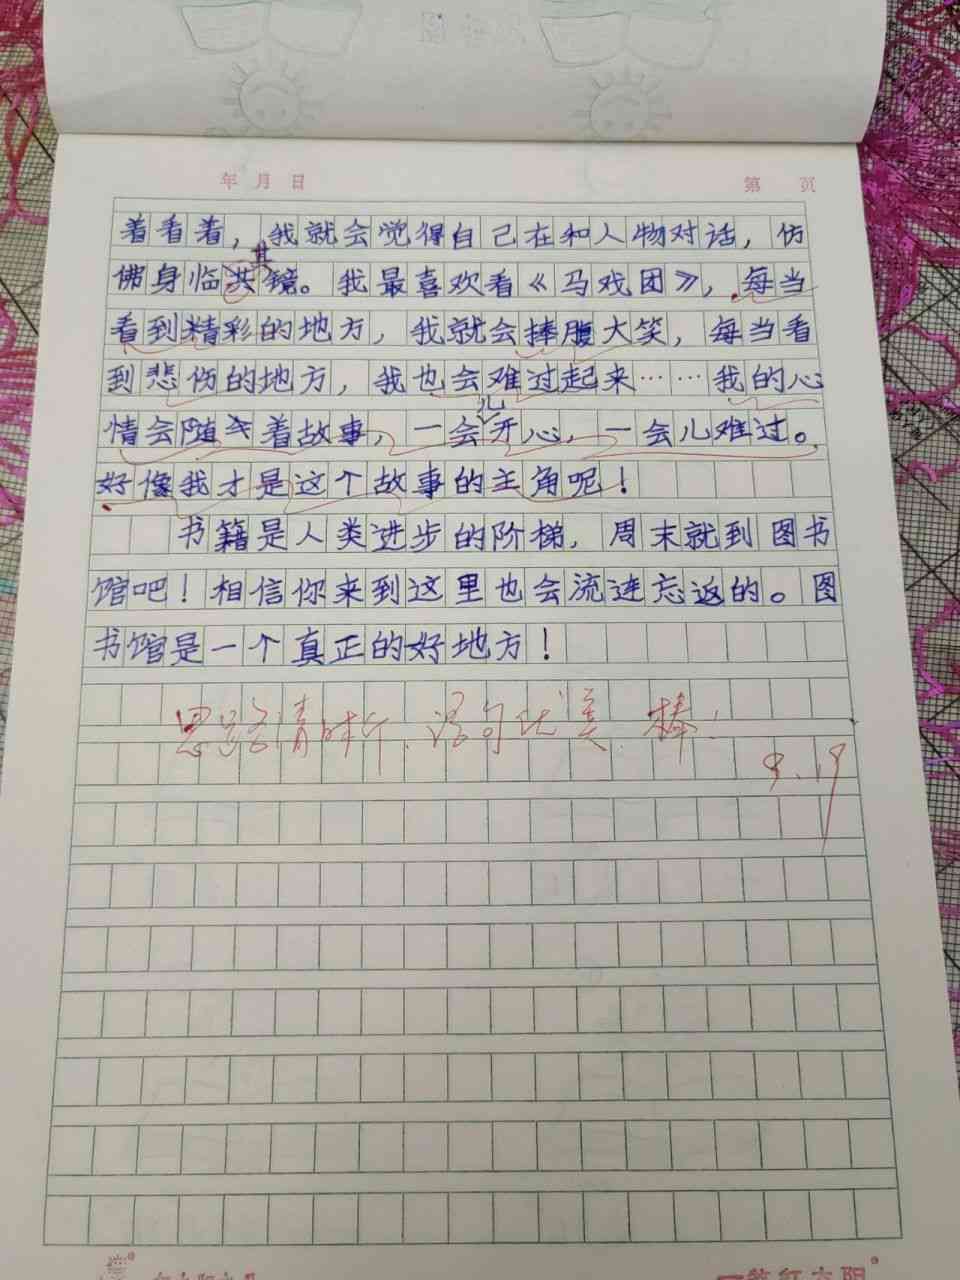 年 月 日
第 页
着看着，我就会觉得自己在和人物对话，仿
其
佛身临共镜。我最喜欢看《马戏团》，每当
看到精彩的地方，我就会捧腹大笑，每当看
到悲伤的地方，我也会难过起来……我的心
儿
情会随着故事，一会开心，一会儿难过。
好像我才是这个故事的主角呢！
书籍是人类进步的阶梯，周末就到图书
馆吧！相信你来到这里也会流连忘返的。图
书馆是一个真正的好地方！
思路清晰，语句优美，棒！
9.19